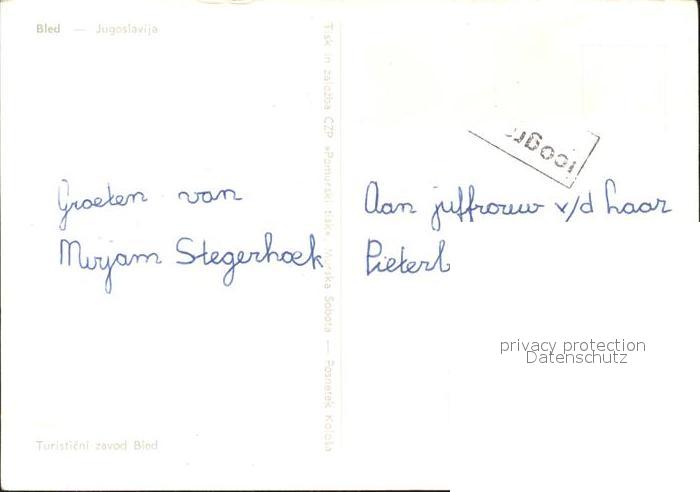 Bled — Jugoslavija
Groeten van
Mirjam Stegerhoek
Turistični zavod Bled
Tisk in založba ČZP »Pomurski tisk«, Murska Sobota — Posnetek Kološa
Aan juffrouw v/d haar
Pieterb
privacy protection
Datenschutz